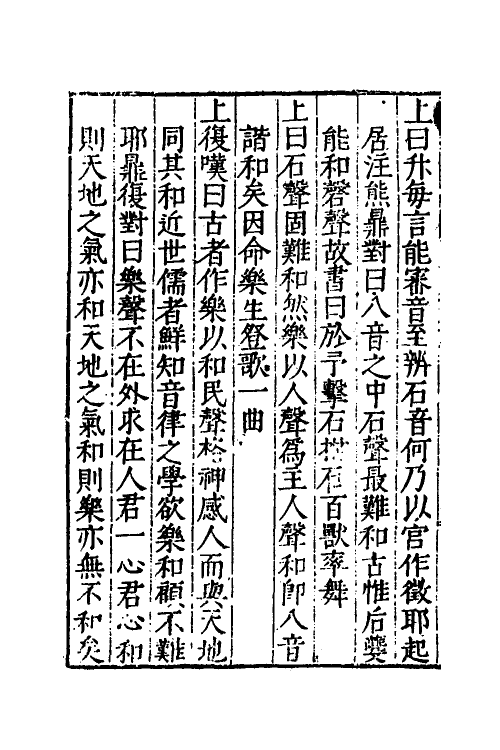 上曰升每言能審音至辨石音何乃以宫作徵耶起
居注熊鼎對曰八音之中石聲最難和古惟后夔
能和磬聲故書曰於予擊石拊石百獸率舞
上曰石聲固難和然樂以人聲爲主人聲和即八音
諧和矣因命樂生登歌一曲
上復嘆曰古者作樂以和民聲格神感人而與天地
同其和近世儒者鮮知音律之學欲樂和顧不難
耶鼎復對曰樂聲不在外求在人君一心君心和
則天地之氣亦和天地之氣和則樂亦無不和矣